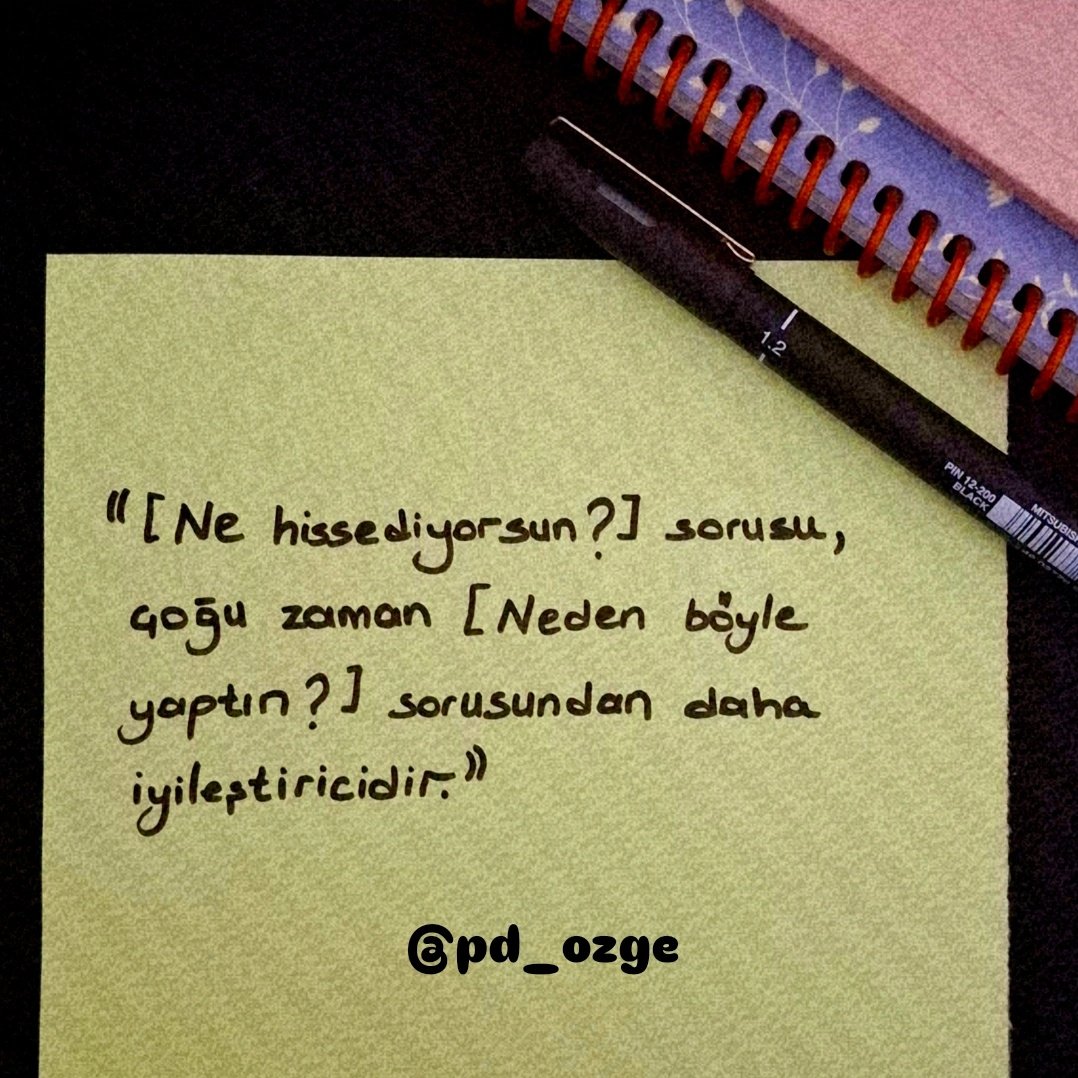 1.2
PIN 12-200
BLACK
MITSUBIS
“[Ne hissediyorsun?] sorusu,
çoğu zaman [Neden böyle
yaptın?] sorusundan daha
iyileştiricidir.”
@pd_ozge